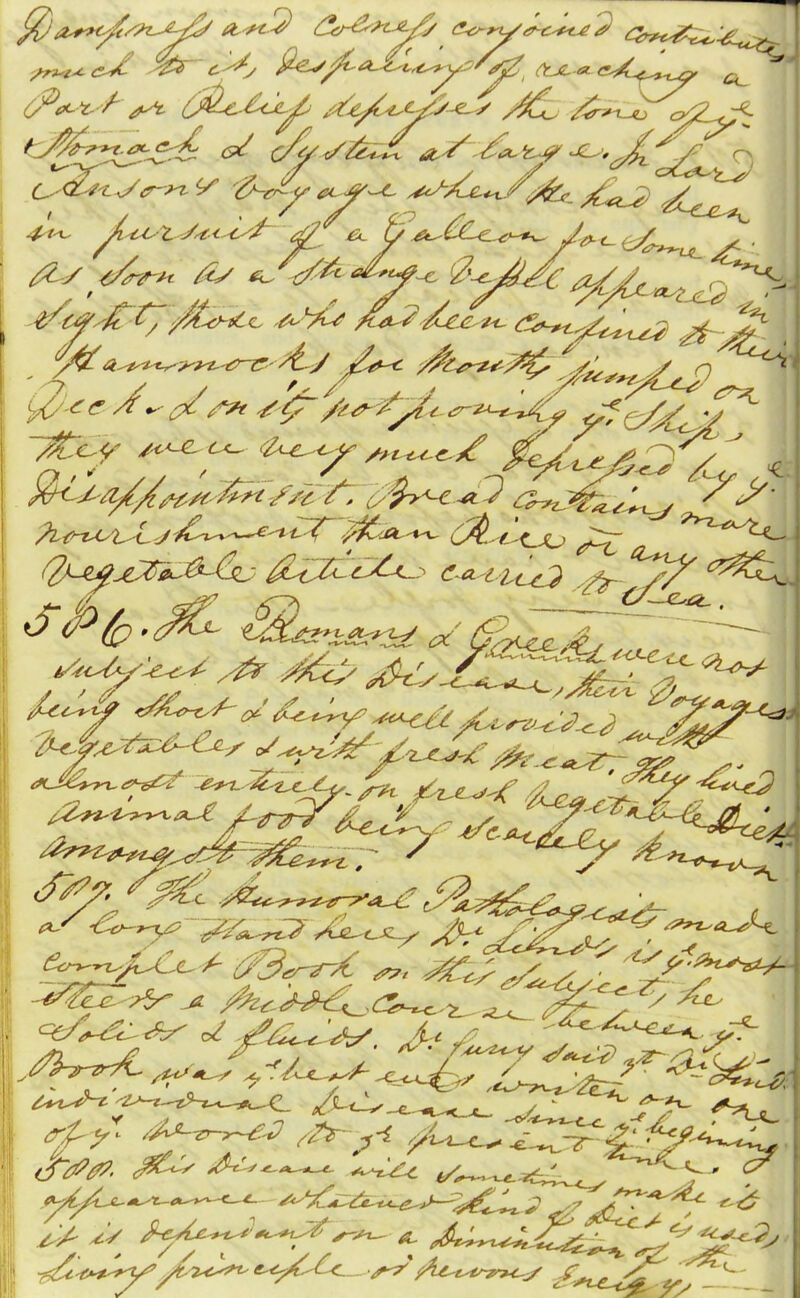 Dampness and Coldness conjoined Contribute
much to it, despairing of, reaching a
Port or Relief depresses the tone of ye
Stomach & System at large. In Lord
Anson's Voyage when He had been
in pursuit of a Galleon for Some time,
As Soon As a Strange Vessel appeared in
Sight, those who had been Confined to their
Hammocks for Months jumped on
Deck & on its not proving ye Ship,
They were very much depressed by ye
Disappointment. Bread Contains more
nourishment than Rice or any other
Vegetable Article carried to Sea.
506. The Romans & Greeks were not
Subject to this Disease, their Voyages
being Short & being well provided with
Vegetables & with fresh Meat. They lived
almost entirely on fresh Vegetable Diet
Animal food being Scarcely known
Amongst them.
507. The Humoral Pathologists made
a long Stand here, Dr. Lind's is ye most
Complet Book on this Subject, he
Steers a Middle Course between ye
Solids & fluids. Dr. said yt Dr. Lind's
Book was ye best ever written on one
individual Disease Since ye beginning
of ye World to ye present time.
508. This Disease will Sometimes make its
appearance whatever kind of Diet is used,
it is dependant on a Diminution of the
living principle or nervous Energy,